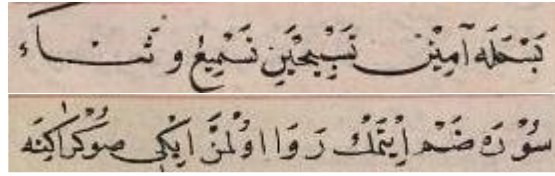 بَسْمَلَه آمِيْن تَسْبِيحَيْنِ تَسْمِيعُ و ثَنَاء
سُوْرَه ضَمْ اِيْتْمَكْ رَوَا اوْلْمَزْ اِيْكِى صُوْكْرَاكِينَه